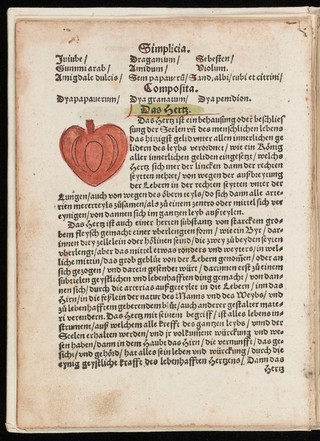 Simplicia.
Jujube/ Dragantum/ Sebesten/
Gummi arab/ Amidum/ Violum.
Amigdale dulcis/ Sem papaueris/ Sand, albi/rubi et citrini/
Composita.
Dyapapauerum/ Dya granatum/ Dya penidion.
Das Hertz.
Das Hertz ist ein behausung oder beschlies
sung der Seelen vnd des menschlichen lebens
das hitzigst gelid vnter allen innerlichen ge
lidern des leybs verordnet/ wie ein König
aller innerlichen geliden eingesetzt/ welchs
Hertz sich mer der lincken dann der rechten
seytten nehet/ von wegen der außbreytung
der Lebern in der rechten seytten vnter der
Lungen/auch von wegen des öbern teyls/do sich dann alle arte-
rien
eynigen/von dannen sich im gantzen leyb außteylen.
Das Hertz ist auch einer herten substantz von starckem gro-
bem fleysch gemacht einer vberlengten form/ wie ein Byr/ dar-
innen drey zellelein oder hölinen sind/die zwey zu beyden seytten
vberlengt/aber das mittel etwas ronders vnd weyters/in wel-
liche mittin/das grob geblüt von der Lebern genomen/oder an
sich gezogen/ vnd darein gesendet würt/ darinnen erst zu einem
subtielen geystlichen vnd lebhafften ding gemacht/ von dan-
nen sich/durch die arterias außgeteylet in die Lebern/ inn das
Hirn/in die feßlein der natur des Manns vnd des Weybs/ vnd
zu lebenhafftem geberenden/ auch anderer gestalter mate-
ri verendern. Das Hertz mit seinem begriff/ ist alles lebens in-
strument/ auß welchem alle krefft des gantzen leybs/ vnnd der
Seelen erhalten werden/vnd ir volkumne würckung vnd we-
sen haben/dann in dem haubt das Hirn/ die vernunfft/ das ge-
sicht/ vnd gehörd/ hat alles sein leben vnd würckung/ durch die
eynig geystliche krafft des lebenhafften Hertzens/ Dann das
Hertz